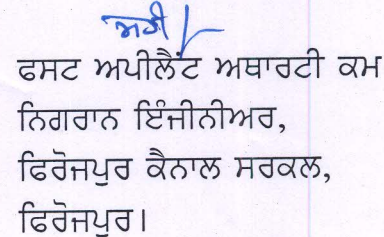 ਸਹੀ/-
ਫਸਟ ਅਪੀਲੈਂਟ ਅਥਾਰਟੀ ਕਮ
ਨਿਗਰਾਨ ਇੰਜੀਨੀਅਰ,
ਫਿਰੋਜਪੁਰ ਕੈਨਾਲ ਸਰਕਲ,
ਫਿਰੋਜਪੁਰ।